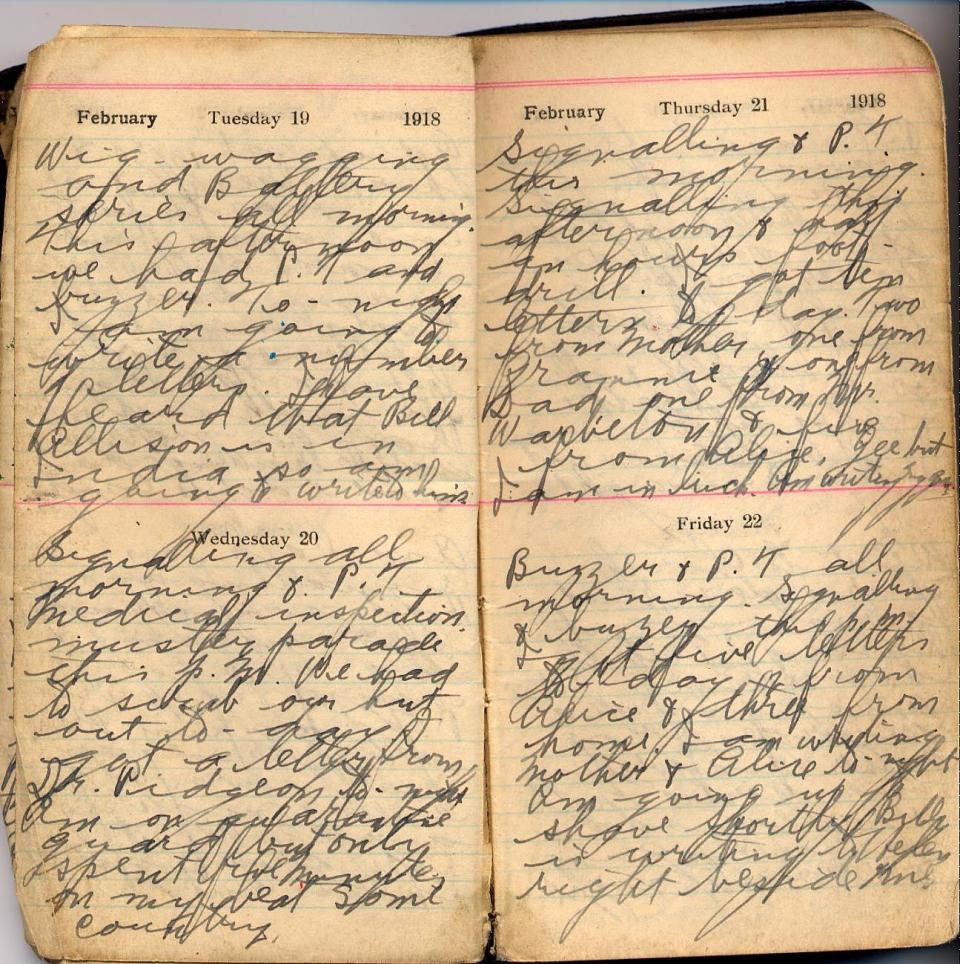 February Tuesday 19 1918
Wig-wagging
and Battery
series all morning.
This afternoon
we had P.T and
buzzer. To-night
I am going to
write a number
of letters. I have
heard that Bill
Allison is in
India so am
going to write to him
Wednesday 20
Signalling all
morning & P.T
medical inspection.
muster parade
this P.M. We had
to scrub our hut
out to-day. I
got a letter from
Dr. Pidgeon to-night
Am on quarantine
guard but only
spent five minutes
on my beat Some
country.
February Thursday 21 1918
Signalling & P.T
this morning.
Signalling this
afternoon & half
an hours foot-
drill. I got ten
letters to day. Two
from Mother, one from
one from
Dad, one from Mrs.
& five
from Alice. Gee but
I am in luck. Am writing
Friday 22
Buzzer & P.T all
morning. Signalling
& buzzer this P.M.
I got five letters
to day from
Alice & three from
home. I am writing
Mother & Alice to-night
Am going to
shave shortly. Bill
is writing
right beside me